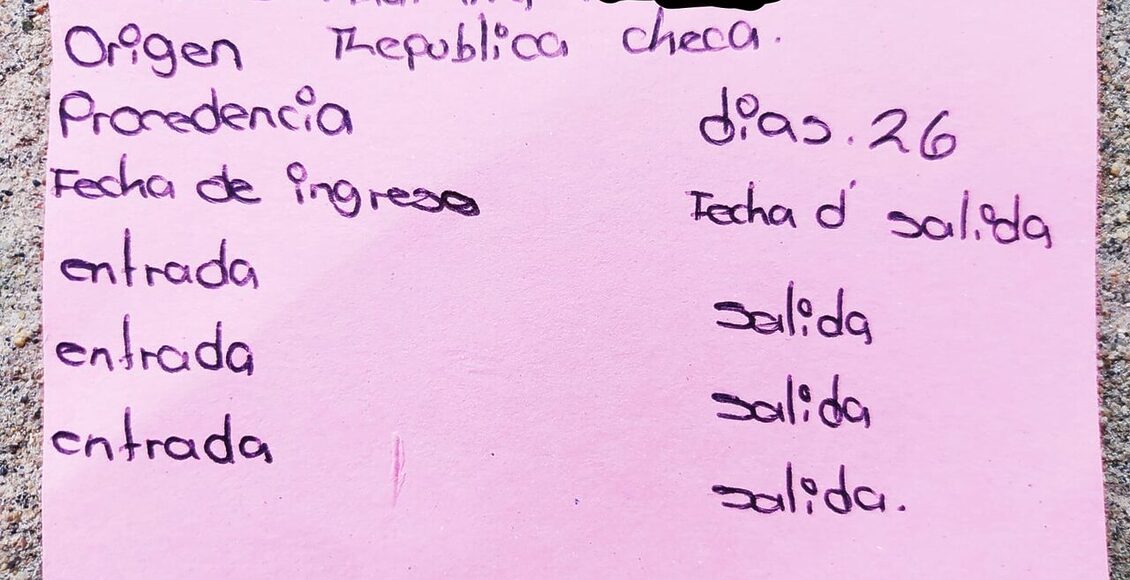 Origen Republica checa.
Procedencia
dias. 26
Fecha de ingreso
Fecha d' salida
entrada
salida
entrada
salida
entrada
salida.